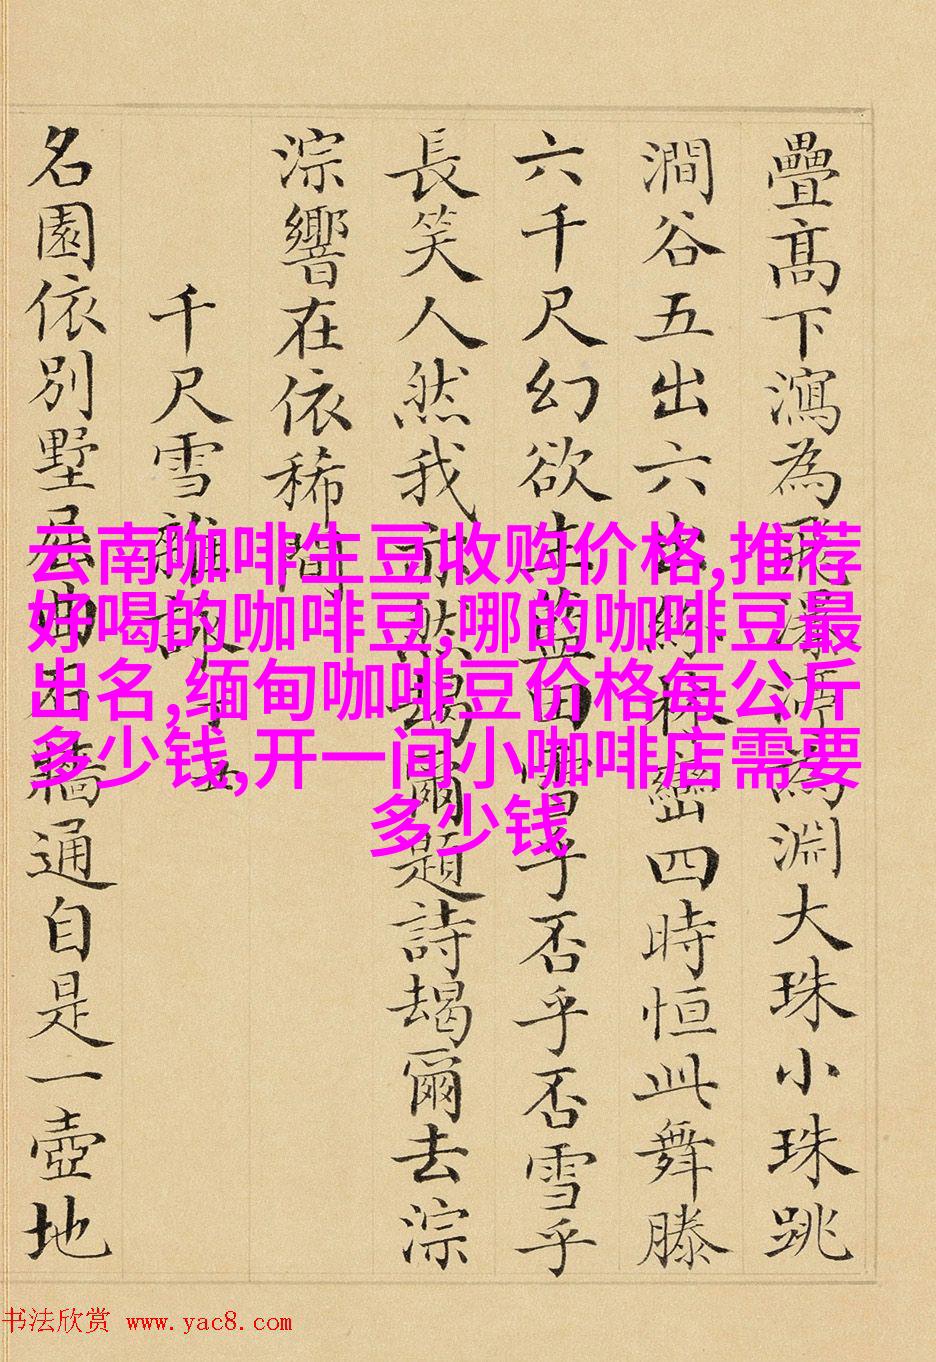 疊髙下瀉為飛瀑渟為淵大珠小珠跳
澗谷五出六出紛林巒四時恒此舞滕
六千尺幻欲生藍田喈乎否乎否雪乎
長笑人然我亦然朅爾題詩朅爾去淙
淙響在依稀間
千尺雪雜詠
名園依別墅屈曲石牆通自是一壺地
云南咖啡生豆收购价格,推荐
好喝的咖啡豆,哪的咖啡豆最
出名,缅甸咖啡豆价格每公斤
多少钱,开一间小咖啡店需要
多少钱
书法欣赏 www.yac8.com